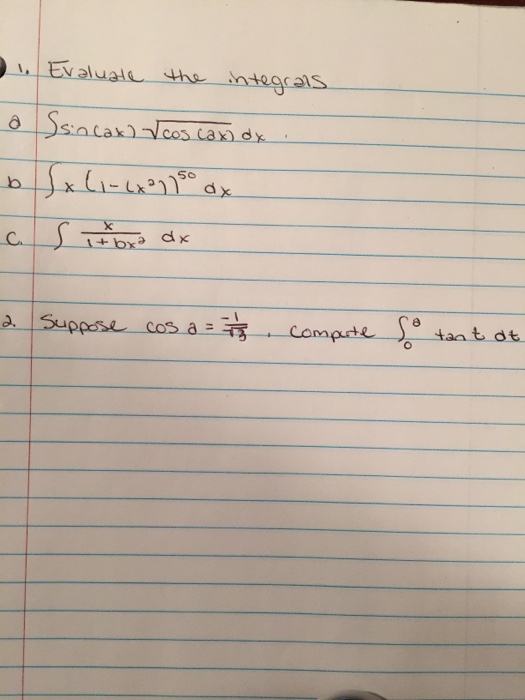 1. Evaluate the integrals
a ∫sin(ax) √cos(ax) dx.
b ∫x(1-(x²))⁵⁰ dx
c. ∫ x/(1+bx²) dx
2. Suppose cos a = -1/√3, compute ∫₀ᵃ tan t dt